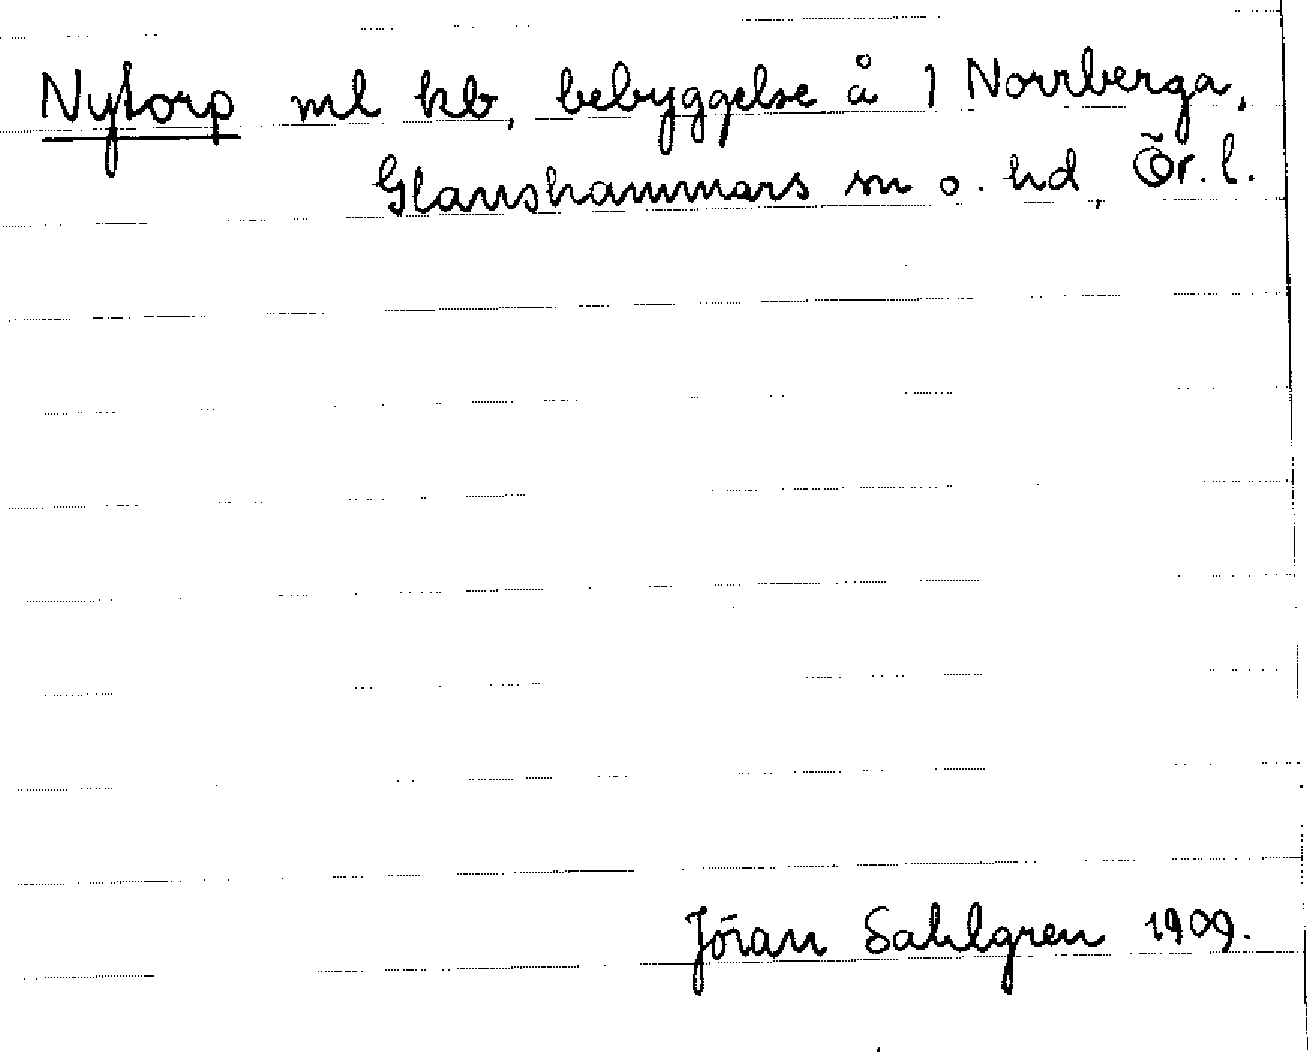 Nytorp ml kb, bebyggelse å 1 Norrberga,
Glanshammars sn o. hd, Ör. l.
Jöran Sahlgren 1909.